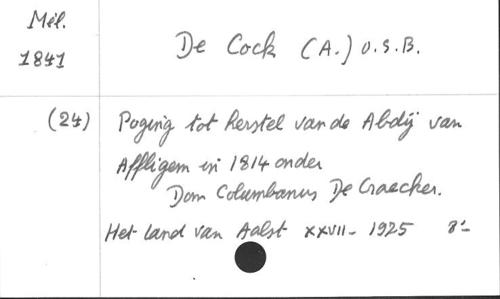 Mél.
1841
De Cock (A.) O.S.B.
(24)
Poging tot herstel van de Abdij van
Affligem in 1814 onder
Dom Columbanus De Craecker.
Het land van Aalst XXVII - 1925 8°